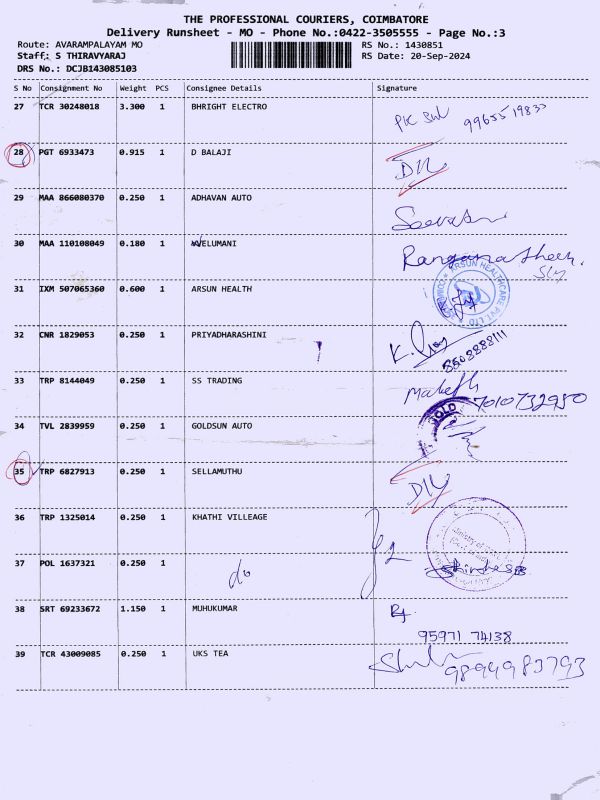 THE PROFESSIONAL COURIERS, COIMBATORE
Delivery Runsheet - MO - Phone No.:0422-3505555 - Page No.:3
Route: AVARAMPALAYAM MO
RS No.: 1430851
Staff: S THIRAVYARAJ
RS Date: 20-Sep-2024
DRS No.: DCJB143085103
S No Consignment No Weight PCS Consignee Details Signature
27 TCR 30248018 3.300 1 BHRIGHT ELECTRO
28 PGT 6933473 0.915 1 D BALAJI
29 MAA 866080370 0.250 1 ADHAVAN AUTO
30 MAA 110108049 0.180 1 VELUMANI
31 IXM 507065360 0.600 1 ARSUN HEALTH
ARSUN HEALTHCARE PVT LTD
32 CNR 1829053 0.250 1 PRIYADHARASHINI
33 TRP 8144049 0.250 1 SS TRADING
7010732950
34 TVL 2839959 0.250 1 GOLDSUN AUTO
GOLD
35 TRP 6827913 0.250 1 SELLAMUTHU
36 TRP 1325014 0.250 1 KHATHI VILLEAGE
37 POL 1637321 0.250 1 do
38 SRT 69233672 1.150 1 MUHUKUMAR
95971 74138
39 TCR 43009085 0.250 1 UKS TEA
9894983793